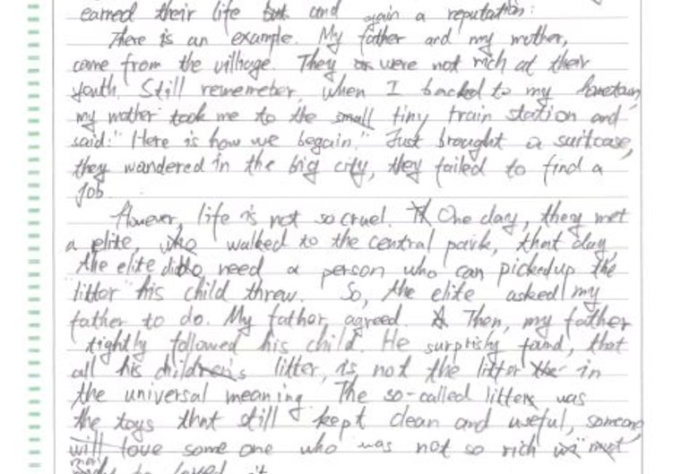 earned their life but and gain a reputation:
There is an example. My father and my mother,
came from the village. They or were not rich at their
youth. Still rememeter, when I backed to my hometain,
my mother took me to the small tiny train station and
said: "Here is how we begain." Just brought a suitcase,
they wandered in the big city, they failed to find a
job.
However, life is not so cruel. One day, they met
a elite, who walked to the central park, that day
the elite need a person who can pickedup the
littor his child threw. So, the elite asked my
father to do. My father agreed. Then, my father
tightly followed his child. He surprisly found, that
all his children's litter, is not the litter the in
the universal meaning. The so-called litters was
the toys that still kept clean and useful, someone
will love some one who was not so rich
to loved it.